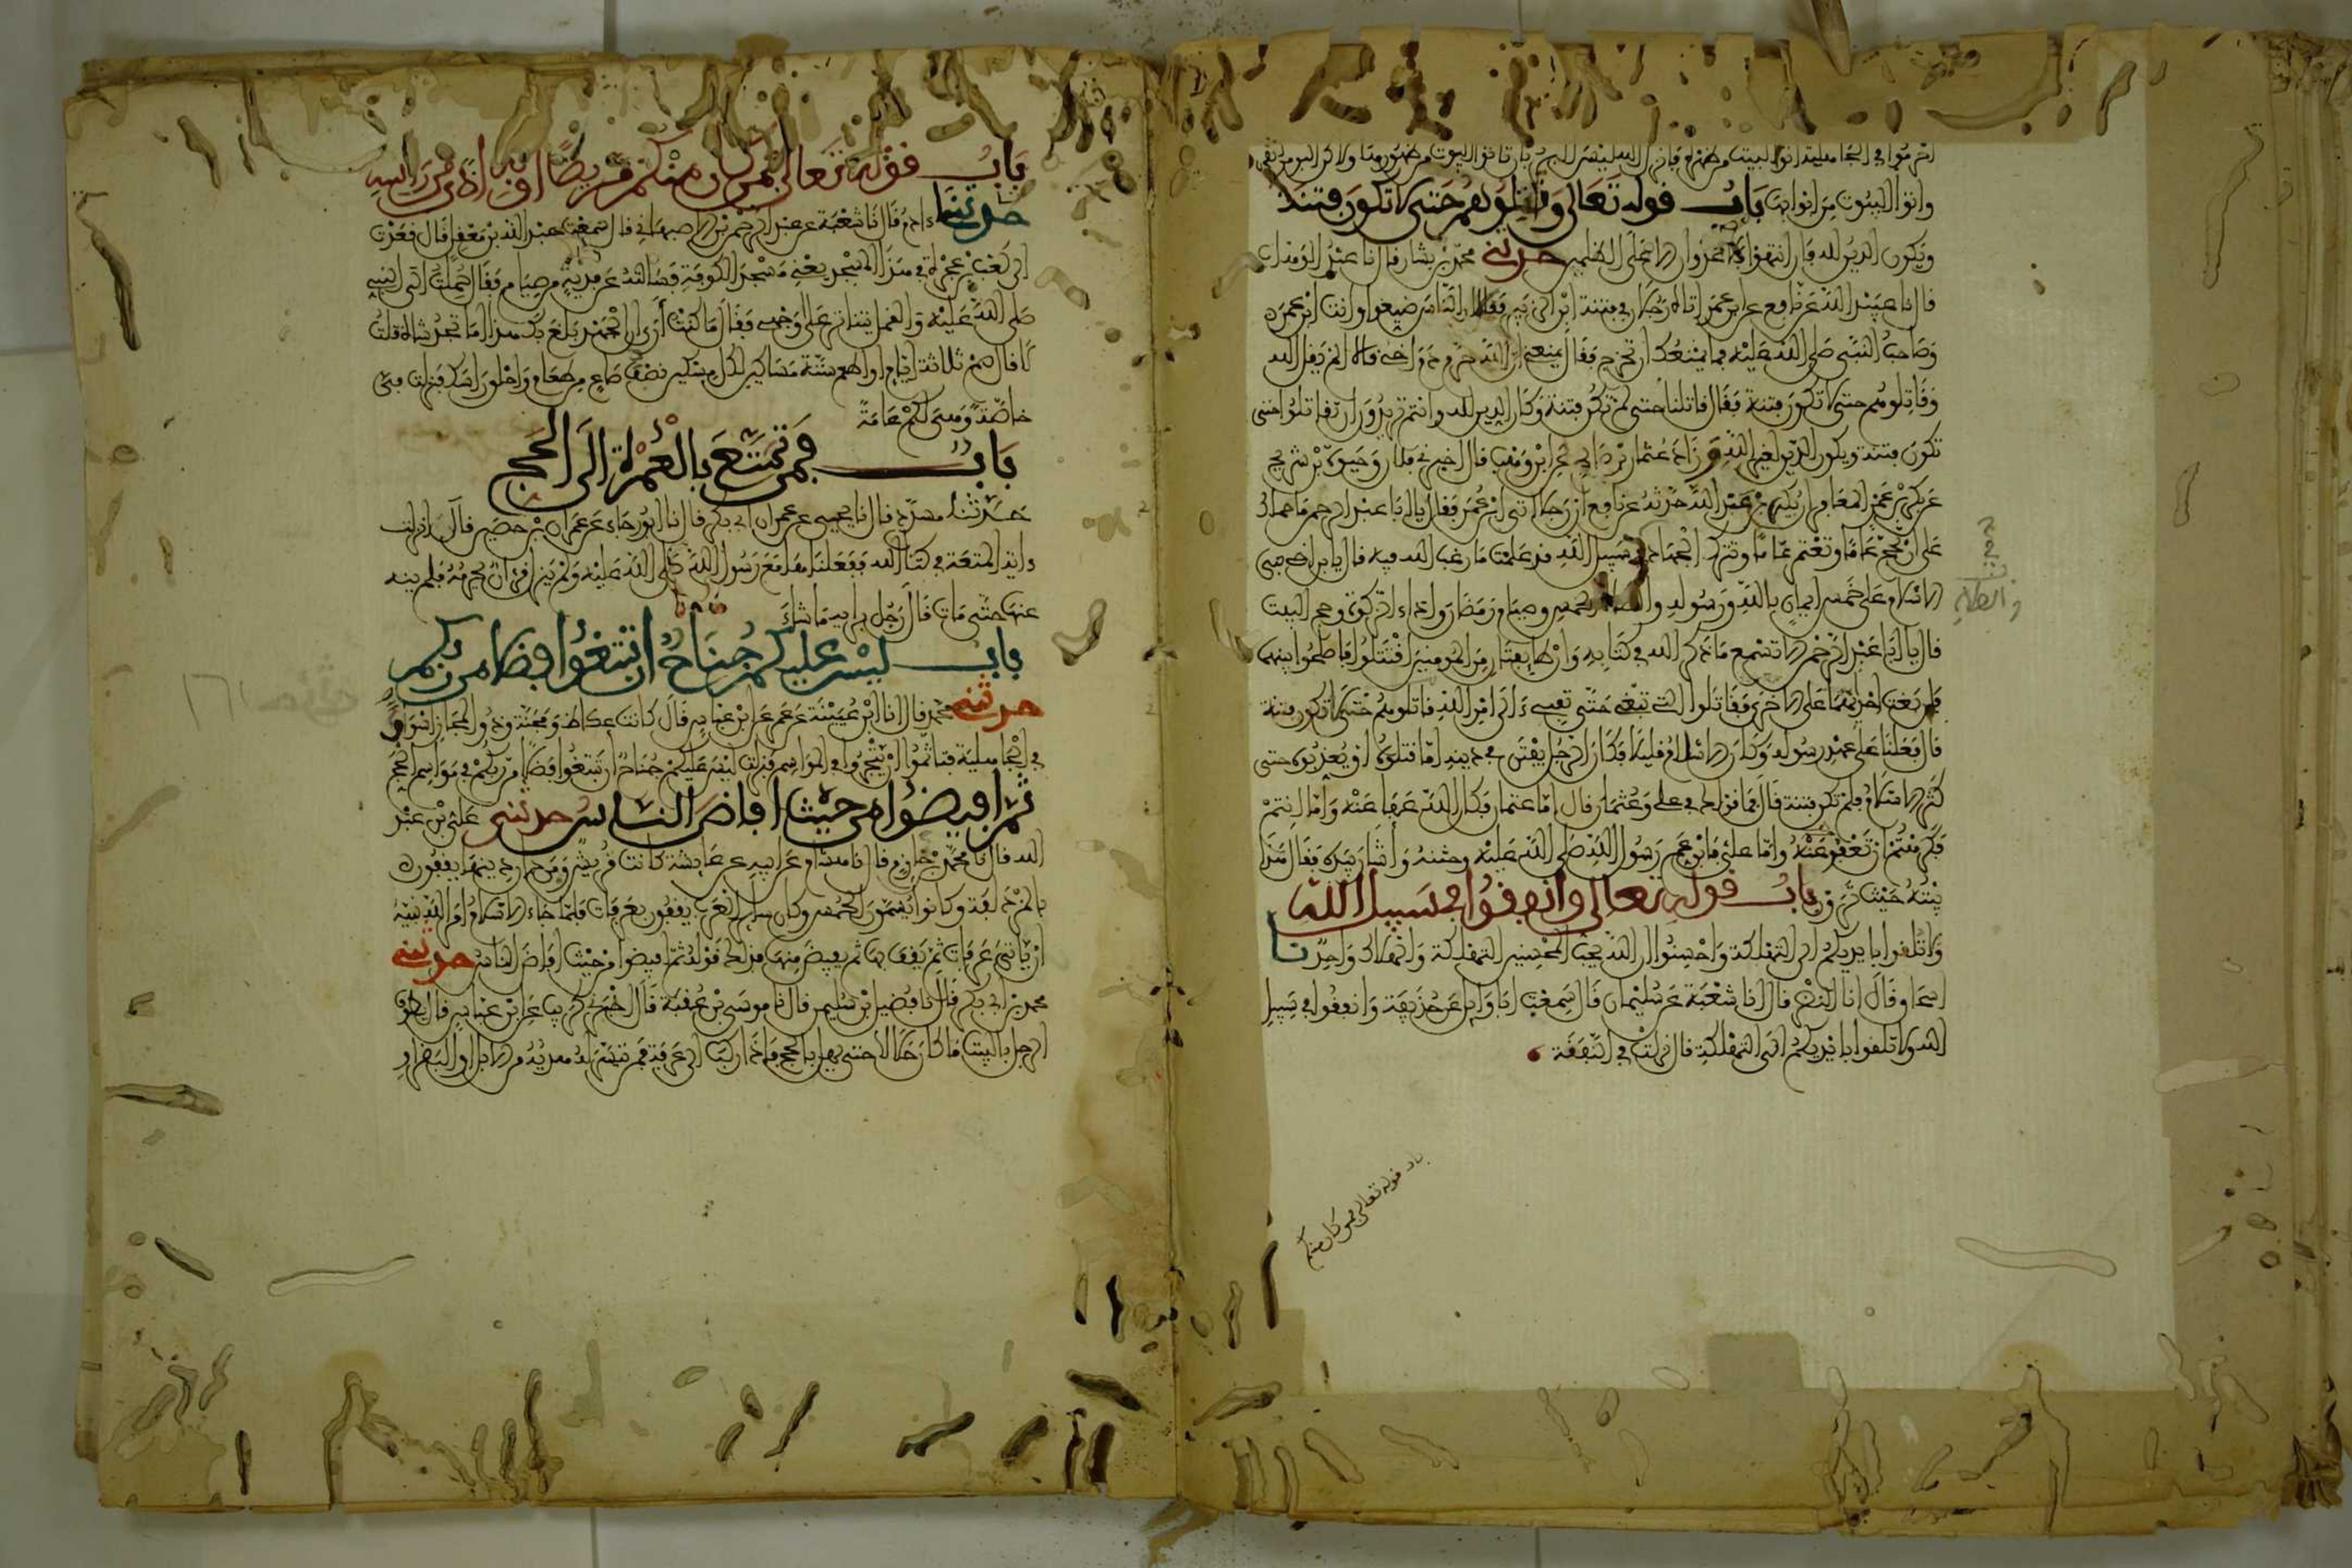 وأتوا البيوت من أبوابها باب قوله تعالى وقاتلوهم حتى لا تكون فتنة
ويكون الدين لله فإن انتهوا فلا عدوان إلا على الظالمين حدثني محمد بن بشار قال نا عبد الوهاب
قال نا عبيد الله عن نافع عن ابن عمر أتاه رجلان في فتنة ابن الزبير فقالا إن الناس ضيعوا وأنت ابن عمر
وصاحب النبي صلى الله عليه فما يمنعك أن تخرج فقال يمنعني أن الله حرم دم أخي قالا ألم يقل الله
وقاتلوهم حتى لا تكون فتنة فقال قاتلنا حتى لم تكن فتنة وكان الدين لله وأنتم تريدون أن تقاتلوا حتى
تكون فتنة ويكون الدين لغير الله وزاد عثمان بن صالح عن ابن وهب قال أخبرني فلان وحيوة بن شريح
عن بكر بن عمرو المعافري أن بكير بن عبد الله حدثه عن نافع أن رجلا أتى ابن عمر فقال يا أبا عبد الرحمن ما حملك
على أن تحج عاما وتعتمر عاما وتترك الجهاد في سبيل الله قد علمت ما رغب الله فيه قال يا ابن أخي بني
الإسلام على خمس إيمان بالله ورسوله والصلاة الخمس وصيام رمضان وأداء الزكوة وحج البيت
قال يا أبا عبد الرحمن ألا تسمع ما ذكر الله في كتابه وإن طائفتان من المومنين اقتتلوا فأصلحوا بينهما
فإن بغت إحداهما على الأخرى فقاتلوا التي تبغي حتى تفيء إلى أمر الله قاتلوهم حتى لا تكون فتنة
قال فعلنا على عهد رسول الله وكان الإسلام قليلا فكان الرجل يفتن في دينه إما قتلوه أو يعذبوه حتى
كثر الإسلام فلم تكن فتنة قال فما قولك في علي وعثمان قال أما عثمان فكان الله عفا عنه وأما أنتم
فكرهتم أن تعفو عنه وأما علي فابن عم رسول الله صلى الله عليه وختنه وأشار بيده فقال هذا
بيته حيث ترون باب قوله تعالى وأنفقوا في سبيل الله
ولا تلقوا بأيديكم إلى التهلكة وأحسنوا إن الله يحب المحسنين التهلكة والهلاك واحد نا
إسحاق قال أنا النضر قال نا شعبة عن سليمان قال سمعت أبا وائل عن حذيفة وأنفقوا في سبيل
الله ولا تلقوا بأيديكم إلى التهلكة قال نزلت في النفقة
قوله تعالى فمن كان منكم
باب قوله تعالى فمن كان منكم مريضا أو به أذى من رأسه
حدثنا ءادم قال نا شعبة عن عبد الرحمن بن الأصبهاني قال سمعت عبد الله بن معقل قال قعدت
إلى كعب بن عجرة في هذا المسجد يعني مسجد الكوفة فسألته عن فدية من صيام فقال حملت إلى النبي
صلى الله عليه والقمل يتناثر على وجهي فقال ما كنت أرى أن الجهد بلغ بك هذا أما تجد شاة قلت
لا قال صم ثلاثة أيام أو أطعم ستة مساكين لكل مسكين نصف صاع من طعام واحلق رأسك فنزلت في
خاصة وهي لكم عامة
باب فمن تمتع بالعمرة إلى الحج
حدثنا مسدد قال نا يحيى عن عمران أبي بكر قال نا أبو رجاء عن عمران بن حصين قال أنزلت
ءاية المتعة في كتاب الله ففعلناها مع رسول الله صلى الله عليه ولم ينزل قرءان يحرمه فلم ينه
عنها حتى مات قال رجل برأيه ما شاء
باب ليس عليكم جناح أن تبتغوا فضلا من ربكم
حدثني محمد قال أنا ابن عيينة عن عمرو عن ابن عباس قال كانت عكاظ ومجنة وذو المجاز أسواقا
في الجاهلية فتأثموا أن يتجروا في المواسم فنزلت ليس عليكم جناح أن تبتغوا فضلا من ربكم في مواسم الحج
ثم أفيضوا من حيث أفاض الناس حدثني علي بن عبد
الله قال نا محمد بن خازم قال نا هشام عن أبيه عن عايشة كانت قريش ومن دان دينها يقفون
بالمزدلفة وكانوا يسمون الحمس وكان سائر العرب يقفون بعرفات فلما جاء الإسلام أمر الله نبيه
أن يأتي عرفات ثم يقف بها ثم يفيض منها فذلك قوله ثم أفيضوا من حيث أفاض الناس حدثني
محمد بن أبي بكر قال نا فضيل بن سليمن قال نا موسى بن عقبة قال أخبرني كريب عن ابن عباس قال يطوف
الرجل بالبيت ما كان حلالا حتى يهل بالحج فإذا ركب إلى عرفة فمن تيسر له هدية من الإبل أو البقر أو